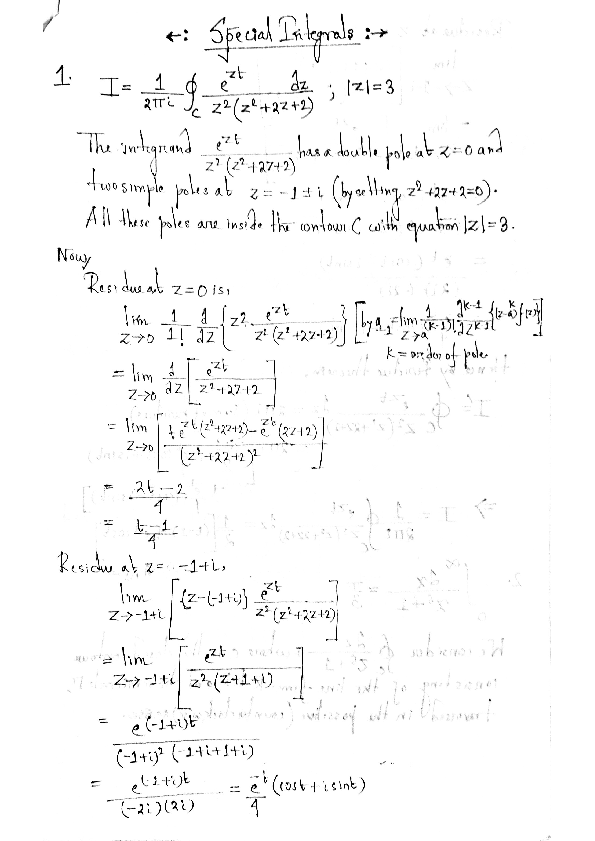 ←: Special Integrals :→
1. I = 1/2πi ∮_C e^{zt}/z²(z²+2z+2) dz ; |z|=3
The integrand e^{zt}/z²(z²+2z+2) has a double pole at z=0 and
two simple poles at z = -1±i (by setting z²+2z+2=0).
All these poles are inside the contour C with equation |z|=3.
Now,
Residue at z=0 is,
lim_{z→0} 1/1! d/dz {z² · e^{zt}/z²(z²+2z+2)} [by a_{-1} = lim_{z→a} 1/(k-1)! d^{k-1}/dz^{k-1} {(z-a)^k f(z)}]
k = order of pole
= lim_{z→0} d/dz [e^{zt}/z²+2z+2]
= lim_{z→0} [te^{zt}(z²+2z+2) - e^{zt}(2z+2)/(z²+2z+2)²]
= 2t-2/4
= t-1/4
Residue at z = -1+i,
lim_{z→-1+i} [{z-(-1+i)} e^{zt}/z²(z²+2z+2)]
= lim_{z→-1+i} [e^{zt}/z²·(z+1+i)]
= e^{(-1+i)t}/(-1+i)²(-1+i+1+i)
= e^{(-1+i)t}/(-2i)(2i) = e^{-t}/4 (cost + isint)